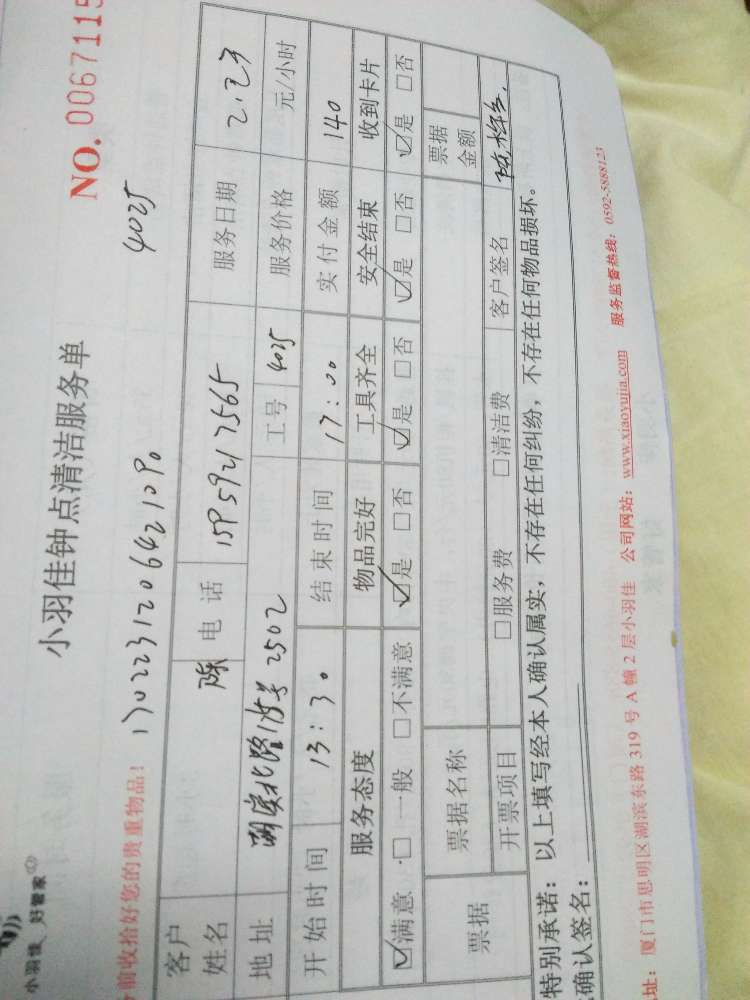 小羽佳 好管家
小羽佳钟点清洁服务单
NO. 0067115
前收拾好您的贵重物品! 1702231206421090 4025
客户姓名 陈 电话 15959217565 服务日期 2.23
地址 湖滨北路 2502 工号 4025 服务价格 元/小时
开始时间 13:30 结束时间 17:00 实付金额 140
服务态度 物品完好 工具齐全 安全结束 收到卡片
☑满意 □一般 □不满意 ☑是 □否 ☑是 □否 ☑是 □否 ☑是 □否
票据 票据名称 票据金额
开票项目 □服务费 □清洁费 客户签名 陈
特别承诺:以上填写经本人确认属实,不存在任何纠纷,不存在任何物品损坏。
确认签名:
址:厦门市思明区湖滨东路 319 号 A 幢 2 层小羽佳 公司网站:www.xiaoyujia.com 服务监督热线:0592-5888123